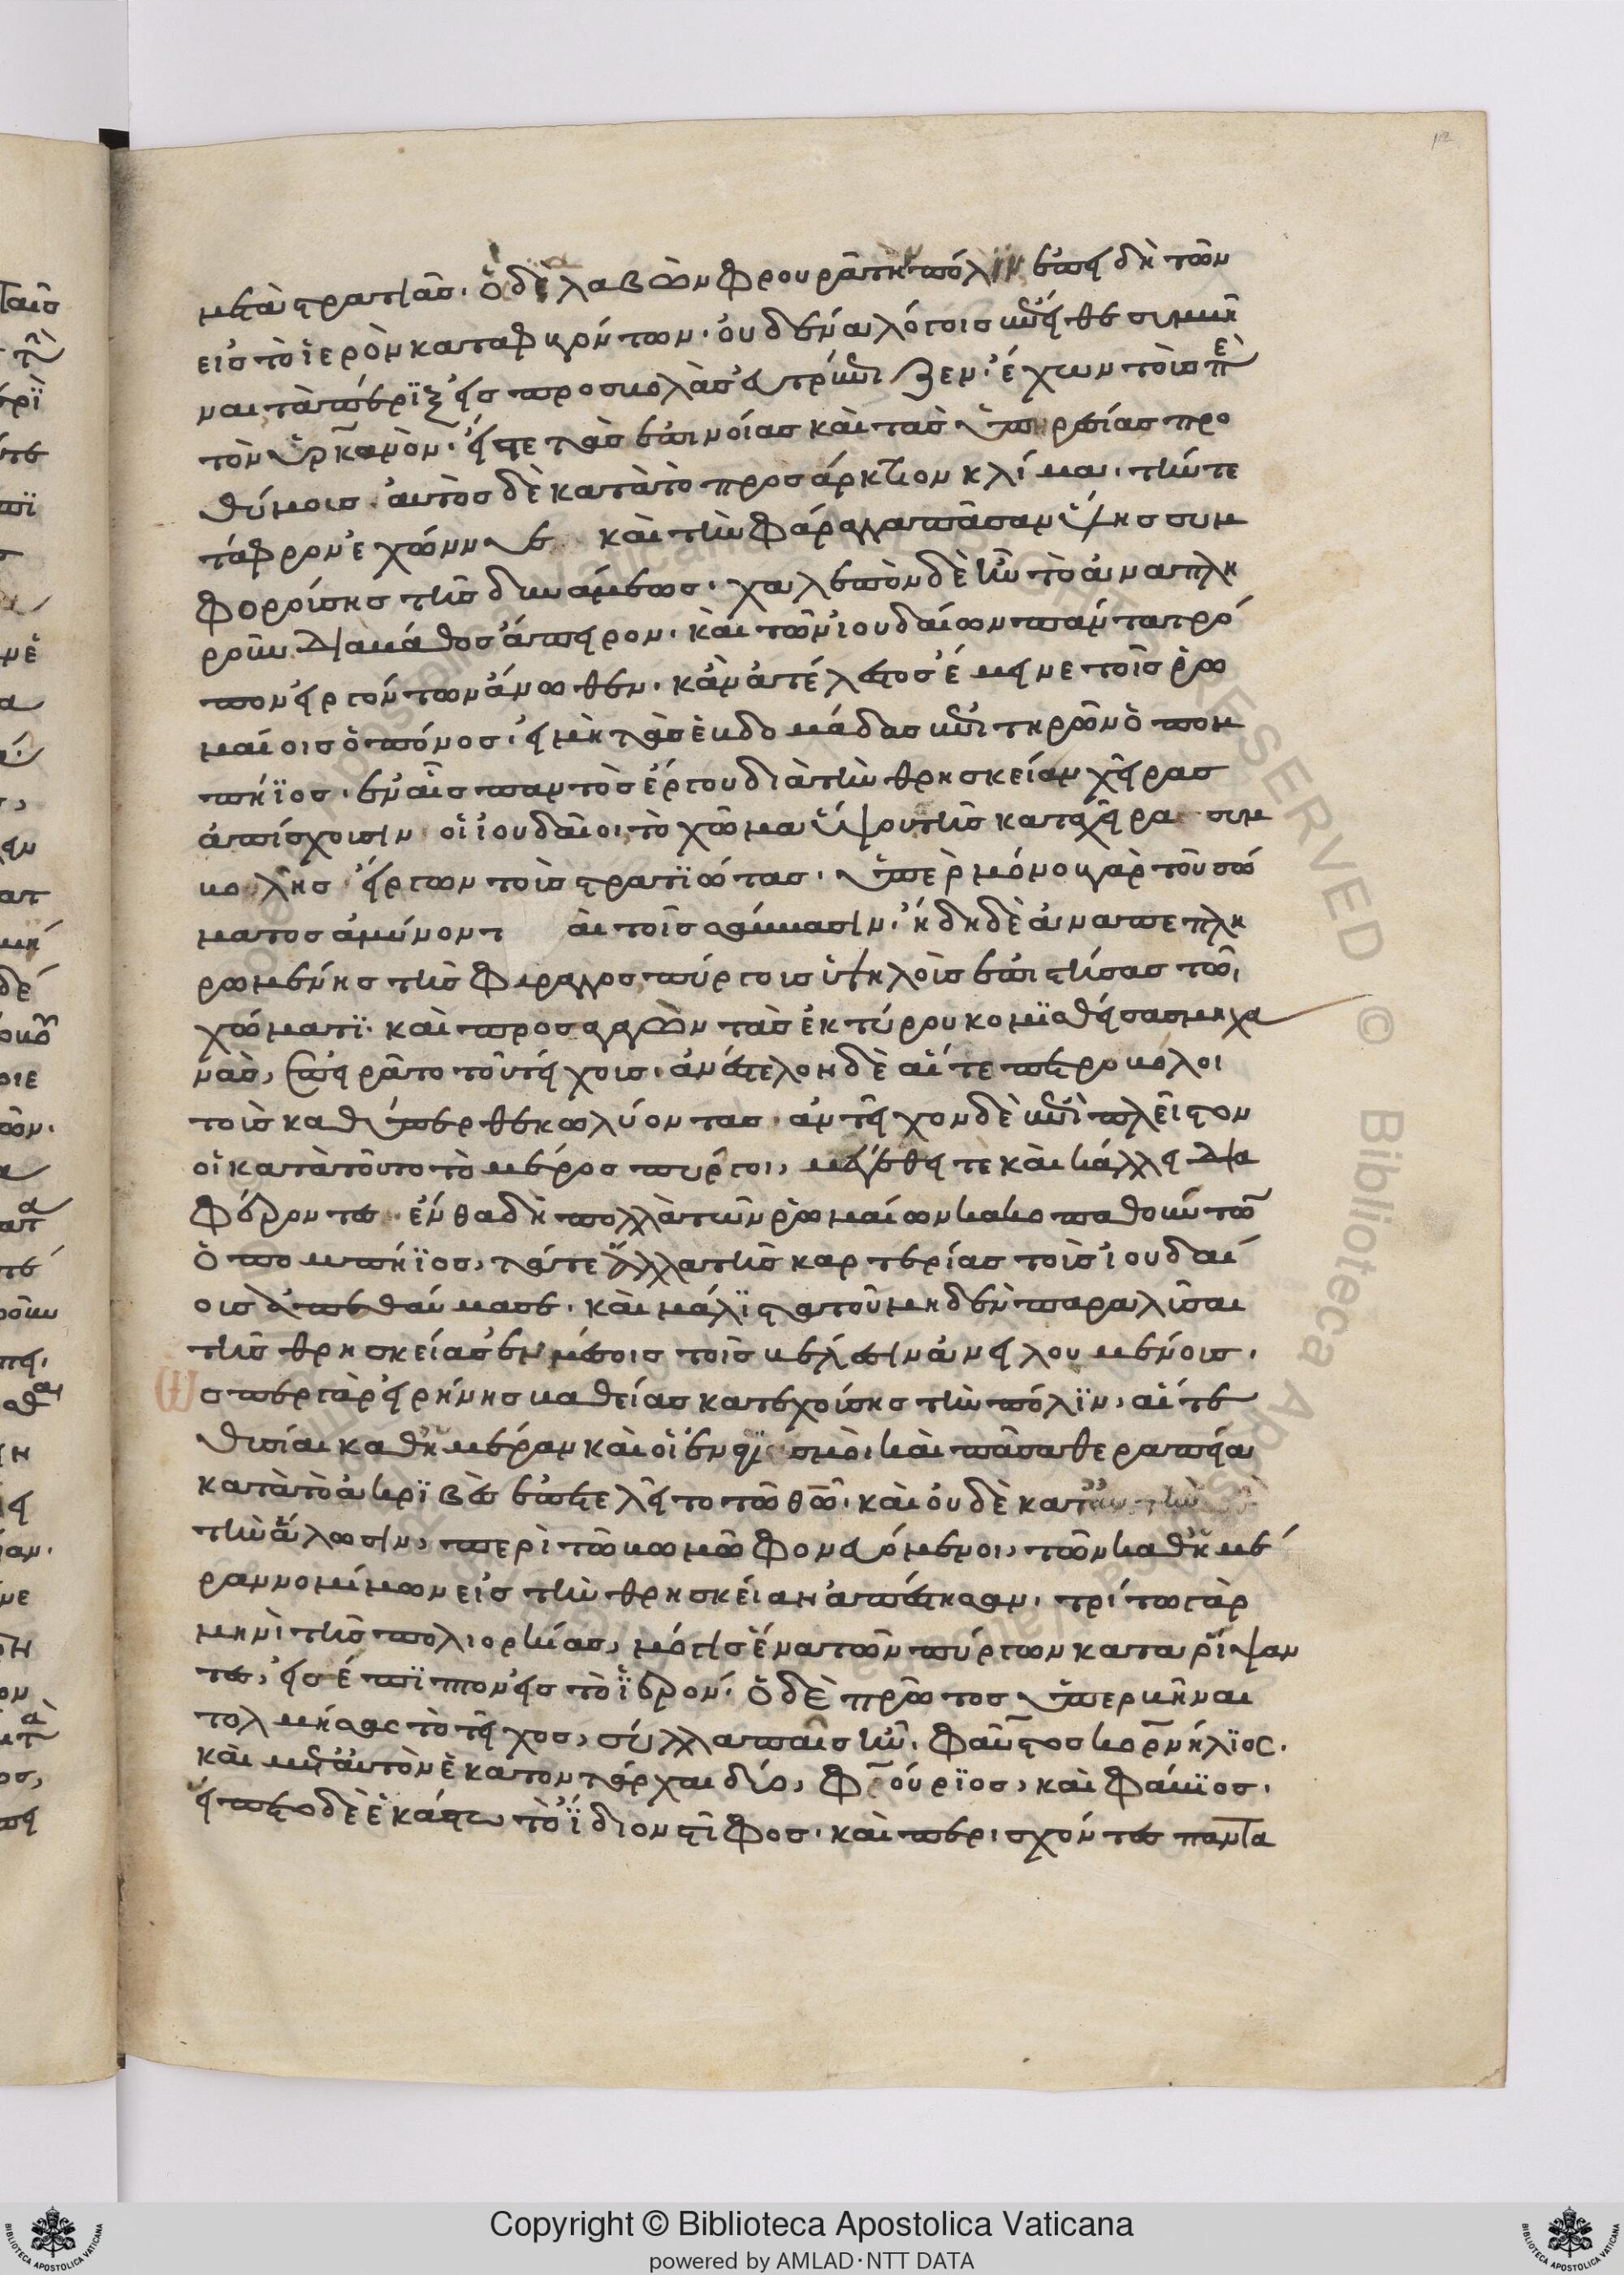 μετὰ στρατιᾶς· ὁ δὲ λαβὼν φρουρᾶ τὴν πόλιν ἐπει δὴ τῶν
εἰς τὸ ἱερὸν καταφυγόντων· οὐδένα λόγοις ἔπειθε συμβῆ
ναι τὰ πέριξ εἰς προσβολὰς εὐτρέπιζεν· ἔχων τοὺς πὲ
τὸν ὑρκανὸν· εἴς τε τὰς ἐπινοίας καὶ τὰς ὑπουργίας προ
θύμους· αὐτὸς δὲ κατὰ τὸ προσάρκτιον κλίμα· τήν τε
τάφρον ἐχώννυε καὶ τὴν φάραγγα πᾶσαν ὕλης συμ
φορούσης τῆς δυνάμεως· χαλεπὸν δὲ ἦν τὸ ἀναπλη
ροῦν διὰ βάθος ἄπειρον· καὶ τῶν ἰουδαίων πάντα τρό
πον εἰργόντων ἄνωθεν· κἂν ἀτέλεστος ἔμεινε τοῖς ῥω
μαίοις ὁ πόνος· εἰ μὴ τὰς ἑβδομάδας ἐπιτηρῶν ὁ πομ
πήϊος· ἐν αἷς παντὸς ἔργου διὰ τὴν θρησκείαν χεῖρας
ἀπίσχουσιν οἱ ἰουδαῖοι· τὸ χῶμα ὕψου τῆς κατὰ χεῖρα συμ
βολῆς εἴργων τοὺς στρατιώτας· ὑπὲρ μόνου γὰρ τοῦ σώ
ματος ἀμύνοντ αι τοῖς σάββασιν· ἤδη δὲ ἀναπεπλη
ρωμένης τῆς φάραγγος πύργους ὑψηλοὺς ἐπιστήσας τῶι
χώματι· καὶ προσαγαγὼν τὰς ἐκ τύρου κομισθείσας μηχα
νὰς, ἐπειρᾶτο τοῦ τείχους· ἀνέστελον δὲ αἵ τε πετροβόλοι
τοὺς καθύπερθε κωλύοντας· ἀντεῖχον δὲ ἐπὶ πλεῖστον
οἱ κατὰ τοῦτο τὸ μέρος πύργοι, μεγέθει τε καὶ κάλλει δια
φέροντες· ἔνθα δὴ πολλὰ τῶν ῥωμαίων κακοπαθούντων
ὁ πομπήϊος, τά τε ἄλλα τῆς καρτερίας τοὺς ἰουδαί
ους ἀπεθαύμασε· καὶ μάλιστα τοῦ μηδὲν παραλῦσαι
τῆς θρησκείας ἐν μέσοις τοῖς βέλεσιν ἀνειλουμένους·
ὥσπερ γὰρ εἰρήνης βαθείας κατεχούσης τὴν πόλιν, αἵ τε
θυσίαι καθ' ἡμέραν καὶ οἱ ἐναγισμοὶ καὶ πᾶσα θεραπεία
κατὰ τὸ ἀκριβὲς ἐπετελεῖτο τῶ θεῶ· καὶ οὐδὲ κατ' αὐτὴν
τὴν ἅλωσιν, περὶ τῶ βωμῶ φονευόμενοι, τῶν καθ' ἡμέ
ραν νομίμων εἰς τὴν θρησκείαν ἀπέστησαν· τρίτω γὰρ
μηνὶ τῆς πολιορκίας, μόλις ἕνα τῶν πύργων καταρρίψαν
τες, εἰσέπιπτον εἰς τὸ ἱερόν· ὁ δὲ πρῶτος ὑπερβῆναι
τολμήσας τὸ τεῖχος, σύλλα παῖς ἦν· φαῦστος κορνήλιος·
καὶ μετ' αὐτὸν ἑκατοντάρχαι δύο, φρούριος, καὶ φάβιος·
εἵπετο δὲ ἑκάστω τὸ ἴδιον στῖφος· καὶ περισχόντες πάντα